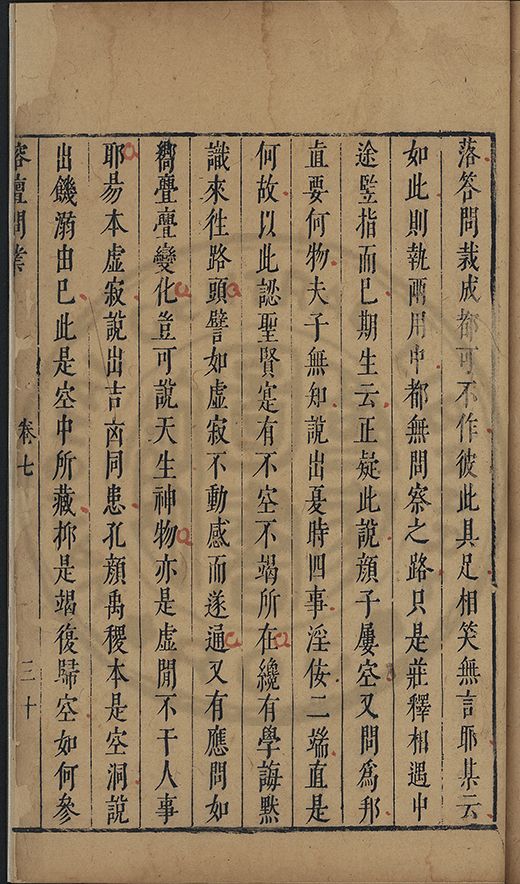 落答問裁成都可不作彼此具足相笑無言耶某云
如此則執兩用中都無問察之路只是莊釋相遇中
途竪指而已期生云正疑此說顏子屢空又問為邦
直要何物夫子無知說出夏時四事淫佞二端直是
何故以此認聖賢寔有不空不竭所在纔有學誨默
識來徃路頭譬如虛寂不動感而遂通又有應問如
嚮亹亹變化豈可說天生神物亦是虛閒不干人事
耶易本虛寂說出吉凶同患孔顏禹稷本是空洞說
出饑溺由已此是空中所藏抑是竭復歸空如何參
榕壇問業
卷七
二十